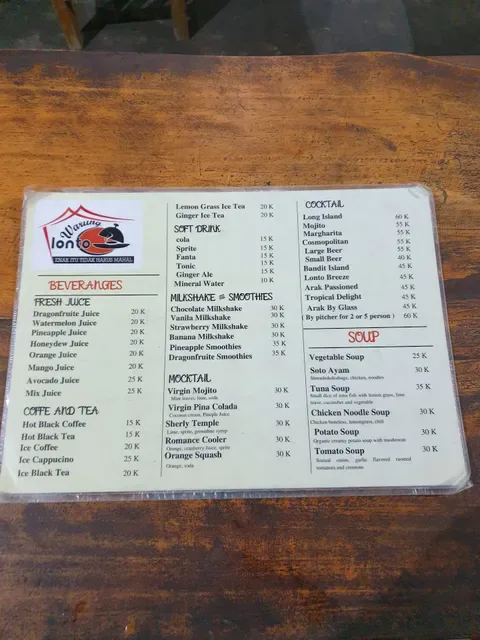 Warung
lonto
ENAK ITU TIDAK HARUS MAHAL
BEVERANGES
FRESH JUICE
Dragonfruit Juice 20 K
Watermelon Juice 20 K
Pineapple Juice 20 K
Honeydew Juice 20 K
Orange Juice 20 K
Mango Juice 20 K
Avocado Juice 25 K
Mix Juice 25 K
COFFE AND TEA
Hot Black Coffee 15 K
Hot Black Tea 15 K
Ice Coffee 20 K
Ice Cappucino 25 K
Ice Black Tea 20 K
Lemon Grass Ice Tea 20 K
Ginger Ice Tea 20 K
SOFT DRINK
cola 15 K
Sprite 15 K
Fanta 15 K
Tonic 15 K
Ginger Ale 15 K
Mineral Water 10 K
MILKSHAKE & SMOOTHIES
Chocolate Milkshake 30 K
Vanila Milkshake 30 K
Strawberry Milkshake 30 K
Banana Milkshake 30 K
Pineapple Smoothies 35 K
Dragonfruit Smoothies 35 K
MOCKTAIL
Virgin Mojito 30 K
Mint leaves, lime, soda
Virgin Pina Colada 30 K
Coconut cream, Pinaple Juice
Sherly Temple 30 K
Lime, sprite, grenadine syrup
Romance Cooler 30 K
Orange, cranberry juice, sprite
Orange Squash 30 K
Orange, soda
COCKTAIL
Long Island 60 K
Mojito 55 K
Margharita 55 K
Cosmopolitan 55 K
Large Beer 55 K
Small Beer 40 K
Bandit Island 45 K
Lonto Breeze 45 K
Arak Passioned 45 K
Tropical Delight 45 K
Arak By Glass 45 K
( By pitcher for 2 or 5 person ) 60 K
SOUP
Vegetable Soup 25 K
Soto Ayam 30 K
chicken, noodles
Tuna Soup 35 K
Small dice of tuna fish, with lemon grass, lime
leave, cucumber and vegetable
Chicken Noodle Soup 30 K
Chicken boneless, lemongrass, chili
Potato Soup 30 K
Organic creamy potato soup with mushroom
Tomato Soup 30 K
onion, garlic flavored roasted
tomatoes and croutons